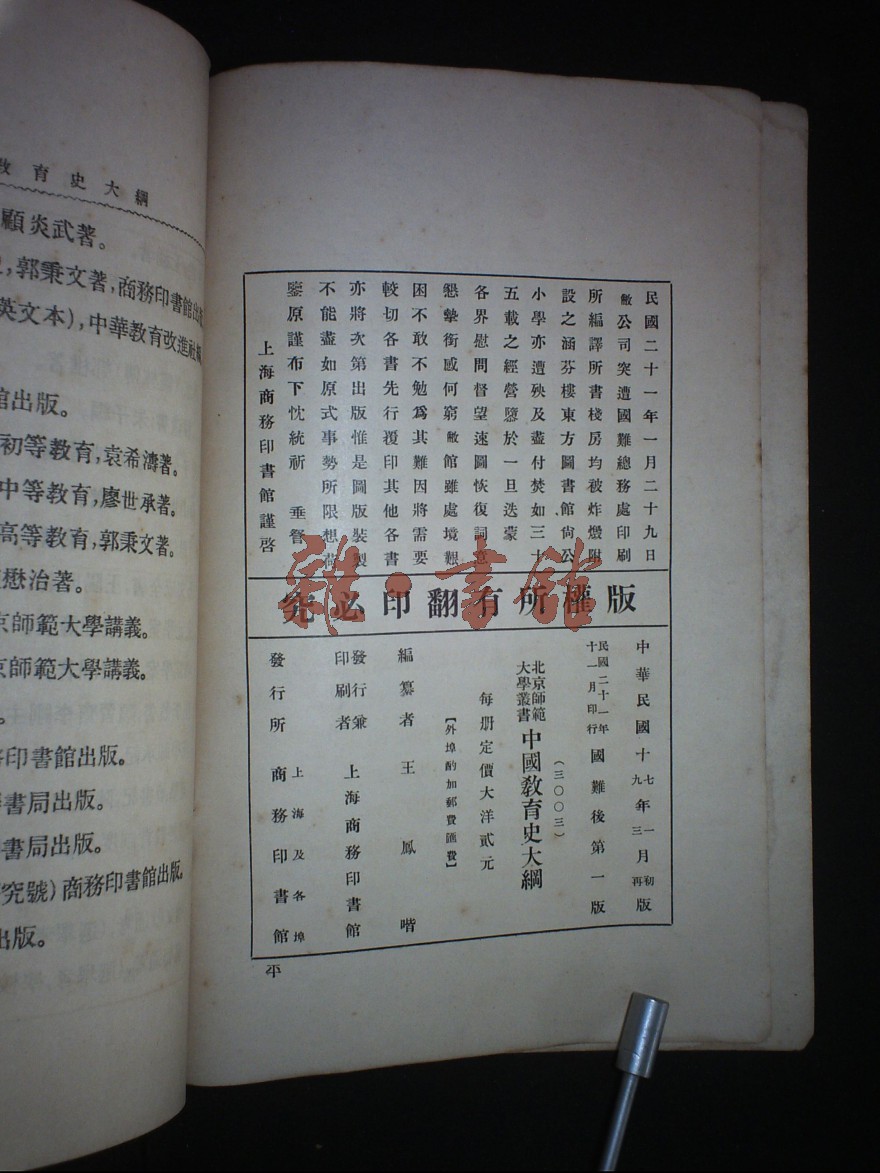 教育史大綱
顧炎武著。
郭秉文著，商務印書館出版
英文本），中華教育改進社編
館出版。
初等教育，袁希濤著。
中等教育，廖世承著。
高等教育，郭秉文著。
懋治著。
京師範大學講義。
京師範大學講義。
印書館出版。
書局出版。
書局出版。
究號）商務印書館出版。
出版。
民國二十一年一月二十九日
敝公司突遭國難總務處印刷
所編譯所書棧房均被炸燬附
設之涵芬樓東方圖書館尙公
小學亦遭殃及盡付焚如三十
五載之經營隳於一旦迭蒙
各界慰問督望速圖恢復詞意
懇摯銜感何窮敝館雖處境艱
困不敢不勉爲其難因將需要
較切各書先行覆印其他各書
亦將次第出版惟是圖版裝製
不能盡如原式事勢所限想荷
鑒原謹布下忱統祈 垂詧
上海商務印書館謹啓
版權所有翻印必究
雜·書館
中華民國十七年一月初版
十九 三 再
民國二十一年十一月印行 國難後第一版
（三〇〇三）
北京師範大學叢書 中國教育史大綱
每册定價大洋貳元
【外埠酌加郵費匯費】
編纂者 王鳳喈
發行兼印刷者 上海商務印書館
發行所 上海及各埠 商務印書館
平